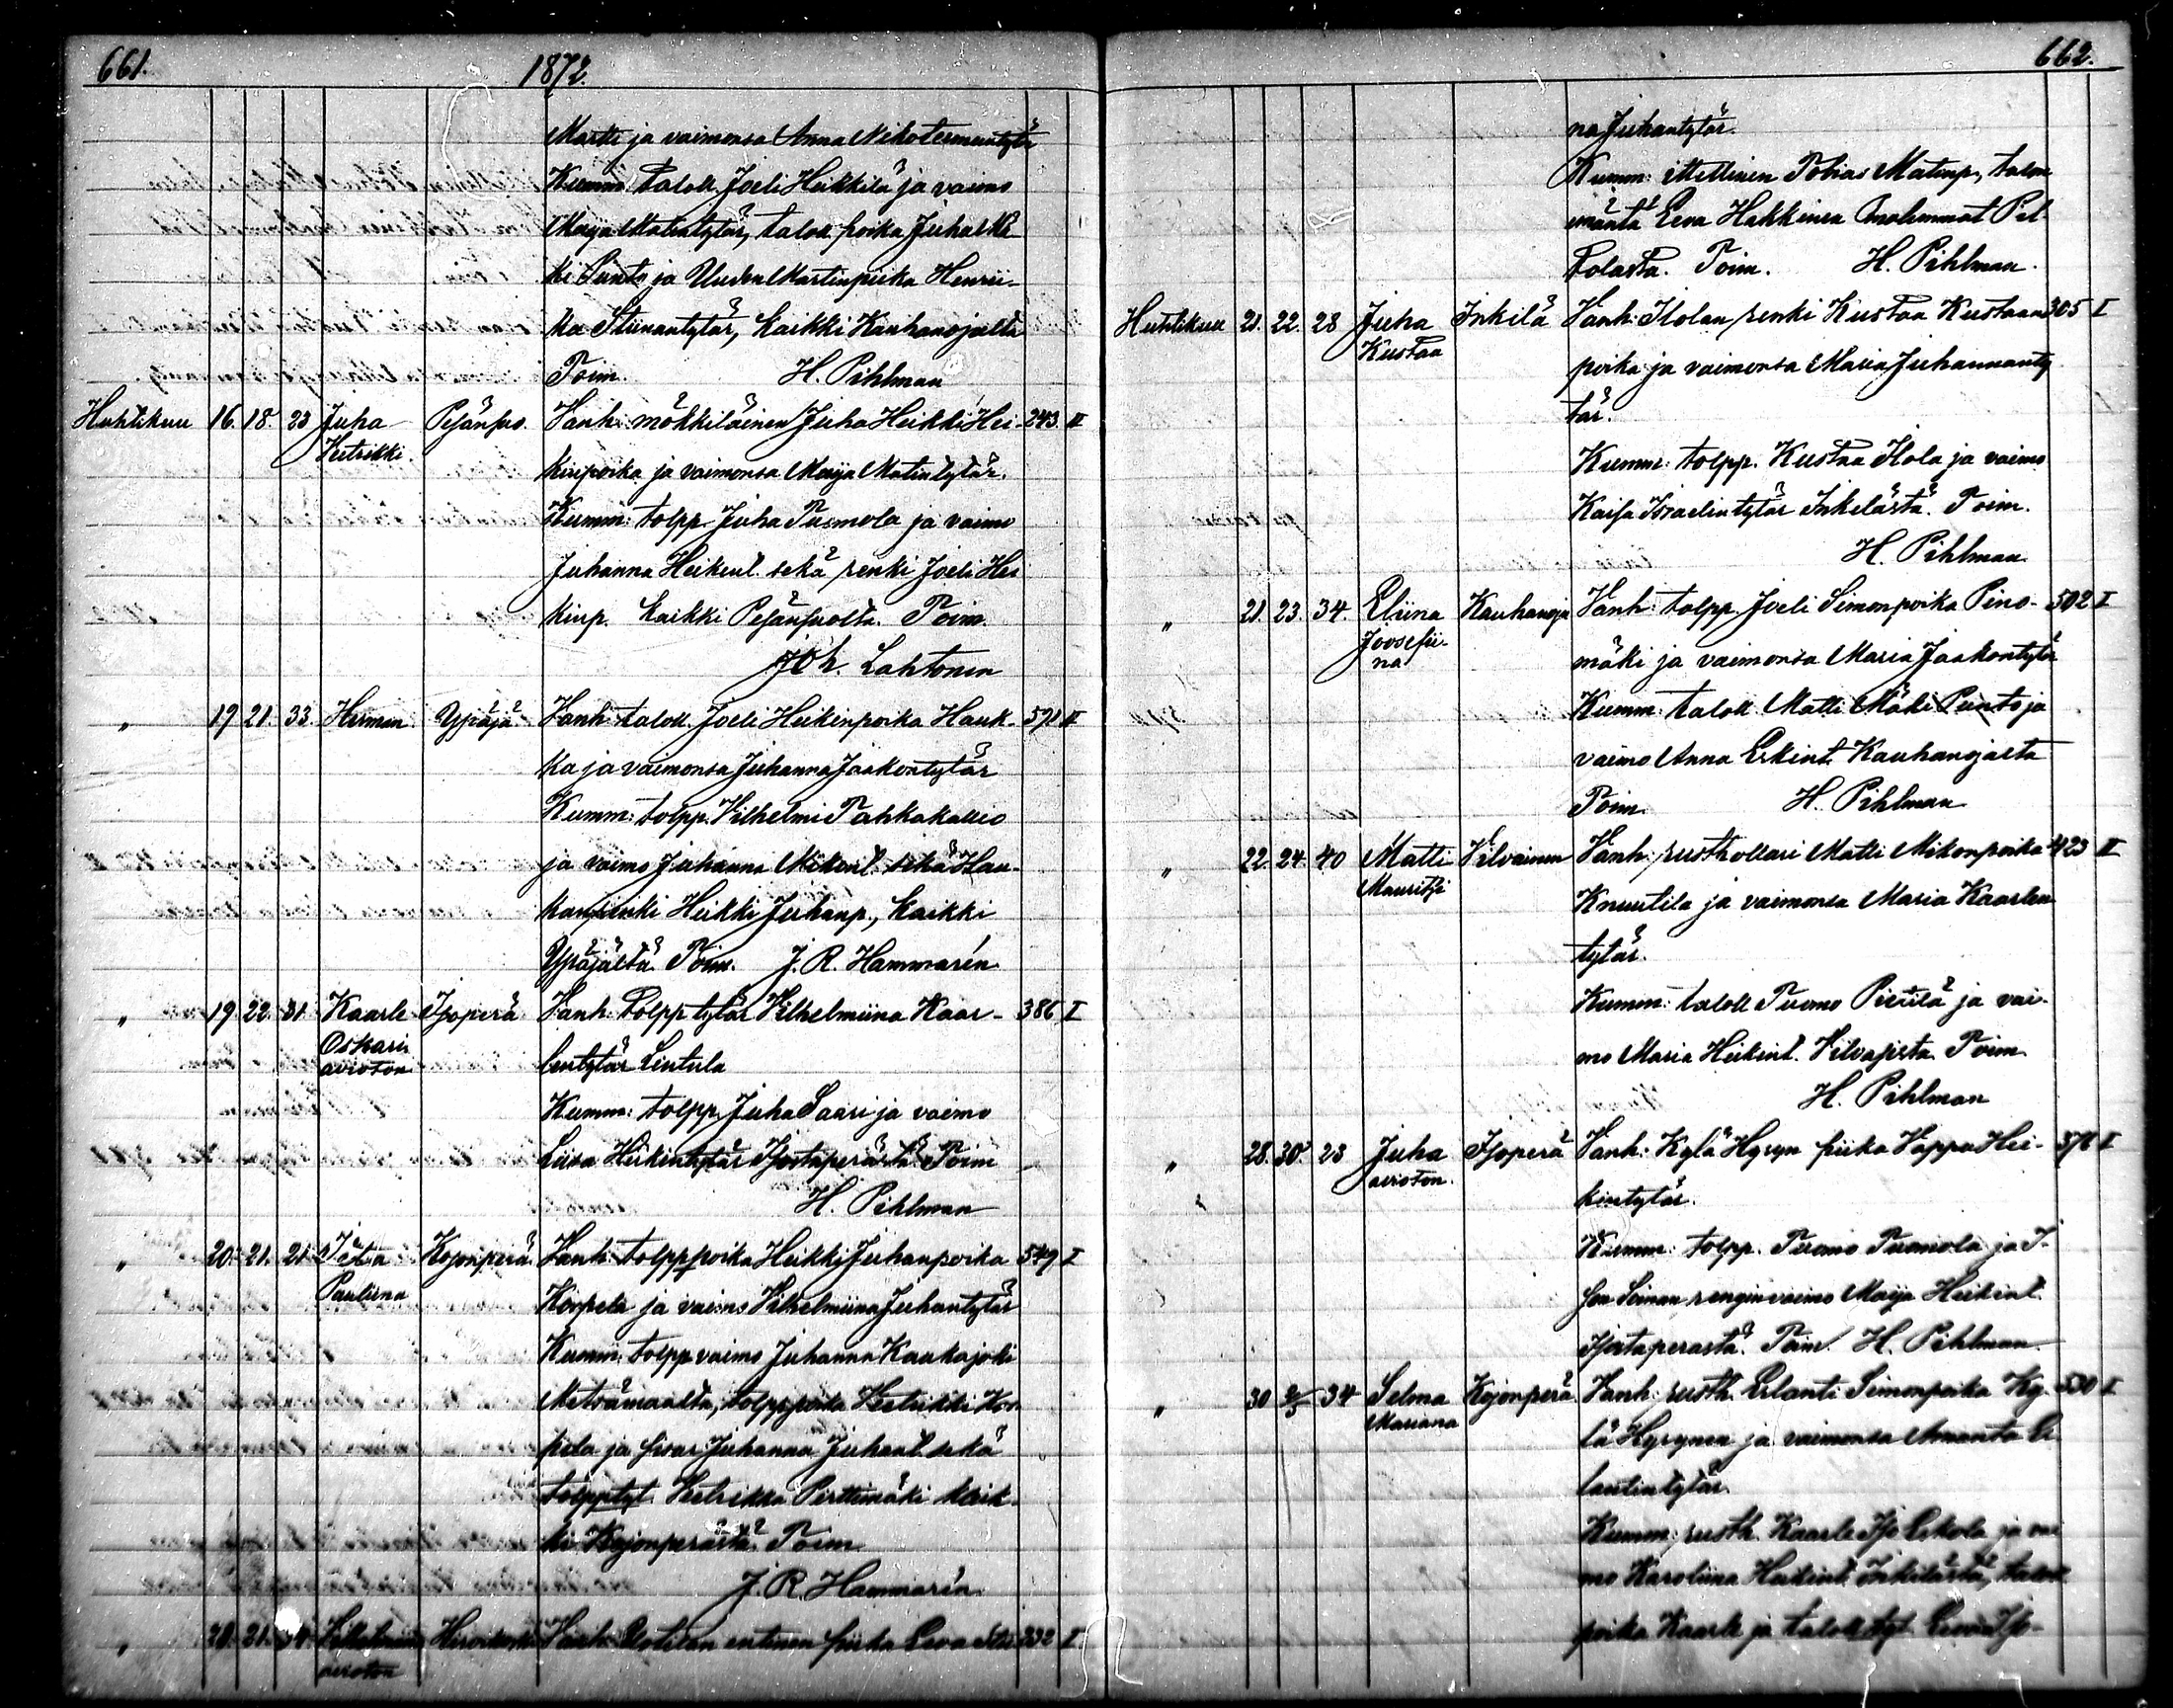 661.
1872.
Martti ja vaimonsa Anna Nikotemuntytär
Kumm: taloll. Joeli Heikkilä ja vaimo
Maija Matintytär, talon poika Juha Mä
ki Punto ja Uuden Martin piika Henrii-
ka Stiinantytär, kaikki Kauhanojalta
Toim. H. Pihlman
Huhtikuu 16. 18. 23 Juha Pesänsuo. Vanh: mökkiläinen Juha Heikki Hei- 243. II
Ketrikki.
kinpoika ja vaimonsa Maija Matintytär.
Kumm: tolpp. Juha Tuomola ja vaimo
Juhanna Heikint. sekä renki Joeli Hei
kinp. kaikki Pesänsuolta. Toim.
Joh. Lahtonen
„ 19 21. 33. Herman. Ypäjä Vanh: taloll. Joeli Heikinpoika Hauk- 591 II
ka ja vaimonsa Juhanna Jaakontytär
Kumm: tolpp. Vilhelmi Tahkakallio
ja vaimo Juhanna Mikint. sekä Hau-
kan renki Heikki Juhanp., kaikki
Ypäjältä. Toim. J. R. Hammarén
„ 19 22. 31. Kaarle Isoperä Vanh: Tolpp tytär Vilhelmiina Kaar- 386 I
Oskari
avioton
lentytär Lintula
Kumm: tolpp. Juha Saari ja vaimo
Liisa Heikintytär Isostaperästä Toim
H. Pihlman
„ 20. 21. 21. Iita Kojonperä Vanh: tolpp poika Heikki Juhanpoika 549 I
Pauliina
Korpela ja vaimo Vilhelmiina Juhantytär
Kumm: tolpp. vaimo Juhanna Kaukajoki
Metsämaalta, tolpp poika Ketrikki Kor
pela ja sisar Juhanna Juhant. sekä
tolpp tyt. Hetrikka Perttimäki kaik-
ki Kojonperästä. Toim
J. R. Hammarén
„ 20. 21. Vilhelmiina Vanh: entinen piika Eeva 332 I
avioton
662.
na Juhantytär.
Kumm: itsellinen Tobias Matinp., talon
isäntä Eeva Hakkinen molemmat Pel
tolasta. Toim. H. Pihlman.
Huhtikuu 21. 22. 28 Juha Inkilä Vanh: Ilolan renki Kustaa Kustaan 305 I
Kustaa
poika ja vaimonsa Maria Juhannanty
tär.
Kumm: tolpp. Kustaa Ilola ja vaimo
Kaisa Israelintytär Inkilästä. Toim.
H. Pihlman
„ 21. 23. 34. Eliina Kauhanoja Vanh: tolpp. Joeli Simonpoika Pino- 502 I
Joosefii-
na
mäki ja vaimonsa Maria Jaakontytär
Kumm: taloll. Matti Mäki Punto ja
vaimo Anna Erkint. Kauhanojalta
Toim. H. Pihlman
„ 22. 24. 40 Matti Vilvainen Vanh: rusthollari Matti Mikonpoika 423 II
Mauritsi
Knuutila ja vaimonsa Maria Kaarlen
tytär.
Kumm: taloll. Tuomo Pietilä ja vai-
mo Maria Heikint. Vilvaista. Toim.
H. Pihlman
„ 28. 30. 23 Juha Isoperä Vanh: Kylä Hyryn piika Vappu Hei- 376 I
avioton.
kintytär.
Kumm: tolpp. Tuomo Tuomola ja I-
son Seinan rengin vaimo Maija Heikint.
Isostaperästä. Toim. H. Pihlman.
„ 30 2/5 34 Selma Kojonperä Vanh: rusth. Erlanti Simonpoika Ky- 530 I
Mariana
lä Hyrynen ja vaimonsa Amanta Er
lantintytär.
Kumm: rusth. Kaarle Iso Eskola ja vai
mo Karoliina Heikint. Inkilästä, taloll.
poika Kaarle ja taloll. tyt. Eeva Iso-